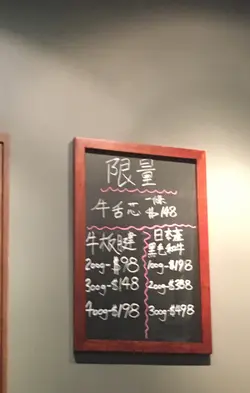 限量
牛舌芯 一條 $148
牛板腱
200g-$98
300g-$148
400g-$198
日本產
黑色和牛
100g-$198
200g-$358
300g-$498